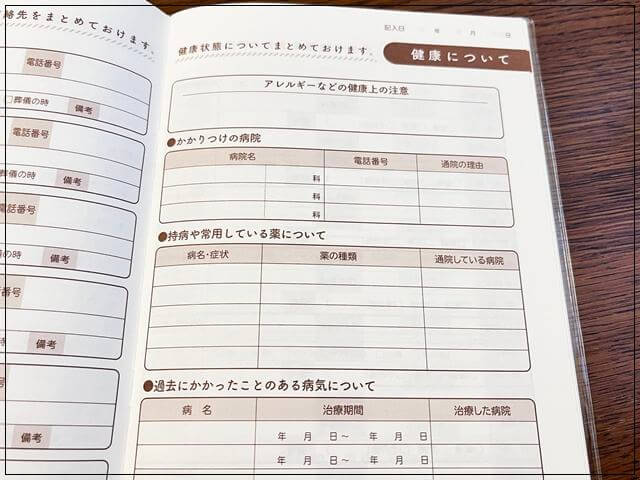 絡先をまとめておけます。
電話番号
□葬儀の時 備考
電話番号
葬儀の時 備考
電話番号
の時 備考
番号
備考
番号
備考
備考
記入日 年 月 日
健康状態についてまとめておけます。
健康について
アレルギーなどの健康上の注意
●かかりつけの病院
病院名 電話番号 通院の理由
科
科
科
●持病や常用している薬について
病名・症状 薬の種類 通院している病院
●過去にかかったことのある病気について
病 名 治療期間 治療した病院
年 月 日〜 年 月 日
年 月 日〜 年 月 日